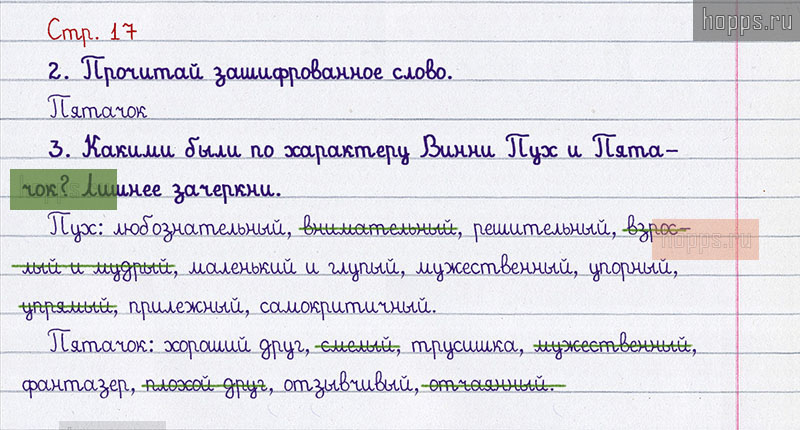 hopps.ru
Стр. 17
2. Прочитай зашифрованное слово.
Пятачок
3. Какими были по характеру Винни Пух и Пята-
чок? Лишнее зачеркни.
Пух: любознательный, внимательный, решительный, взрос-
hopps.ru
лый и мудрый, маленький и глупый, мужественный, упорный,
упрямый, прилежный, самокритичный.
Пятачок: хороший друг, смелый, трусишка, мужественный,
фантазер, плохой друг, отзывчивый, отчаянный.